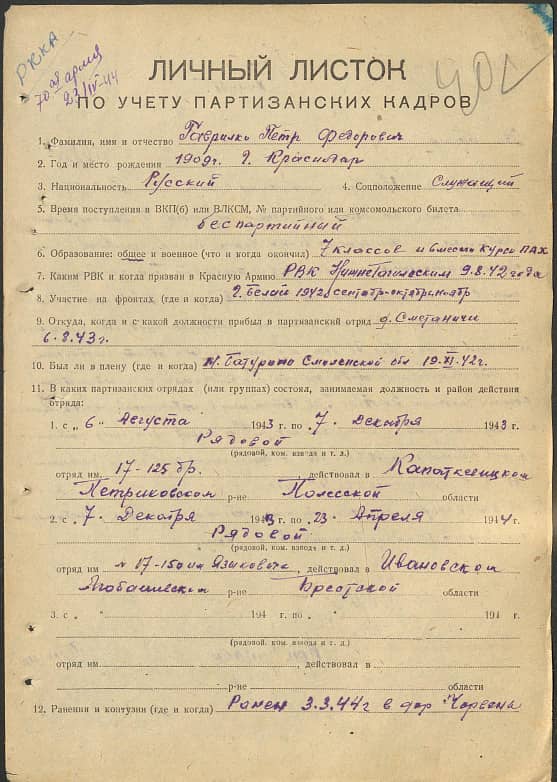 РККА
70ая армия
23/IV-44
ЛИЧНЫЙ ЛИСТОК
ПО УЧЕТУ ПАРТИЗАНСКИХ КАДРОВ
1. Фамилия, имя и отчество Гаврилко Петр Федорович
2. Год и место рождения 1909г. г. Краснодар
3. Национальность Русский 4. Соцположение Служащий
5. Время поступления в ВКП(б) или ВЛКСМ, № партийного или комсомольского билета
беспартийный
6. Образование: общее и военное (что и когда окончил) 7 классов и 6 месяц курсы ПАХ
7. Каким РВК и когда призван в Красную Армию РВК Нижнетагильским 9.8.42 года
8. Участие на фронтах (где и когда) г. Белый 1942 сентябрь-октябрь ноябр
9. Откуда, когда и с какой должности прибыл в партизанский отряд д. Сметаничи
6.8.43 г.
10. Был ли в плену (где и когда) м. Батурино Смоленской обл 19.XI.42г.
11. В каких партизанских отрядах (или группах) состоял, занимаемая должность и район действия
отряда:
1. с „ 6 „ Августа 1943 г. по „ 7 „ Декабря 1943 г.
Рядовой
(рядовой, ком. взвода и т. д.)
отряд им. 17-125 бр. действовал в Капаткевицком
Петриковском р-не Полесской области
2. с „ 7 „ Декабря 1943 г. по „ 23 „ Апреля 1944 г.
Рядовой
(рядовой, ком. взвода и т. д.)
отряд им № 17-150 им Языковича, действовал в Ивановском
р-не Брестской области
3. с „ „ 194 г. по „ „ 194 г.
(рядовой, ком. взвода и т. д.)
отряд им. действовал в
р-не области
12. Ранения и контузии (где и когда) Ранен 3.3.44г в дер